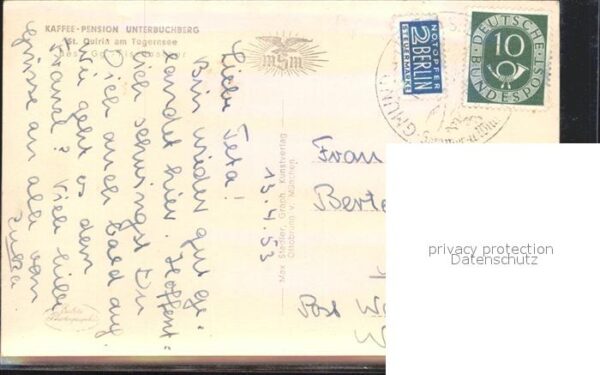 KAFFEE-PENSION UNTERBUCHBERG
St. Quirin am Tegernsee
Liebe Teta!
Bin wieder gut ge-
landet hier. Hoffent-
lich schwingst Du
Dich auch bald auf.
Wie geht es dem
Franzl? Viele liebe
Grüsse an alle von
13.4.53
mSm
Max Stedler, Graph. Kunstverlag
Ottobrunn v. München
NOTOPFER
2 BERLIN
STEUERMARKE
DEUTSCHE
10
BUNDESPOST
GMUND
Frau
Berte
Post Wa
W
privacy protection
Datenschutz